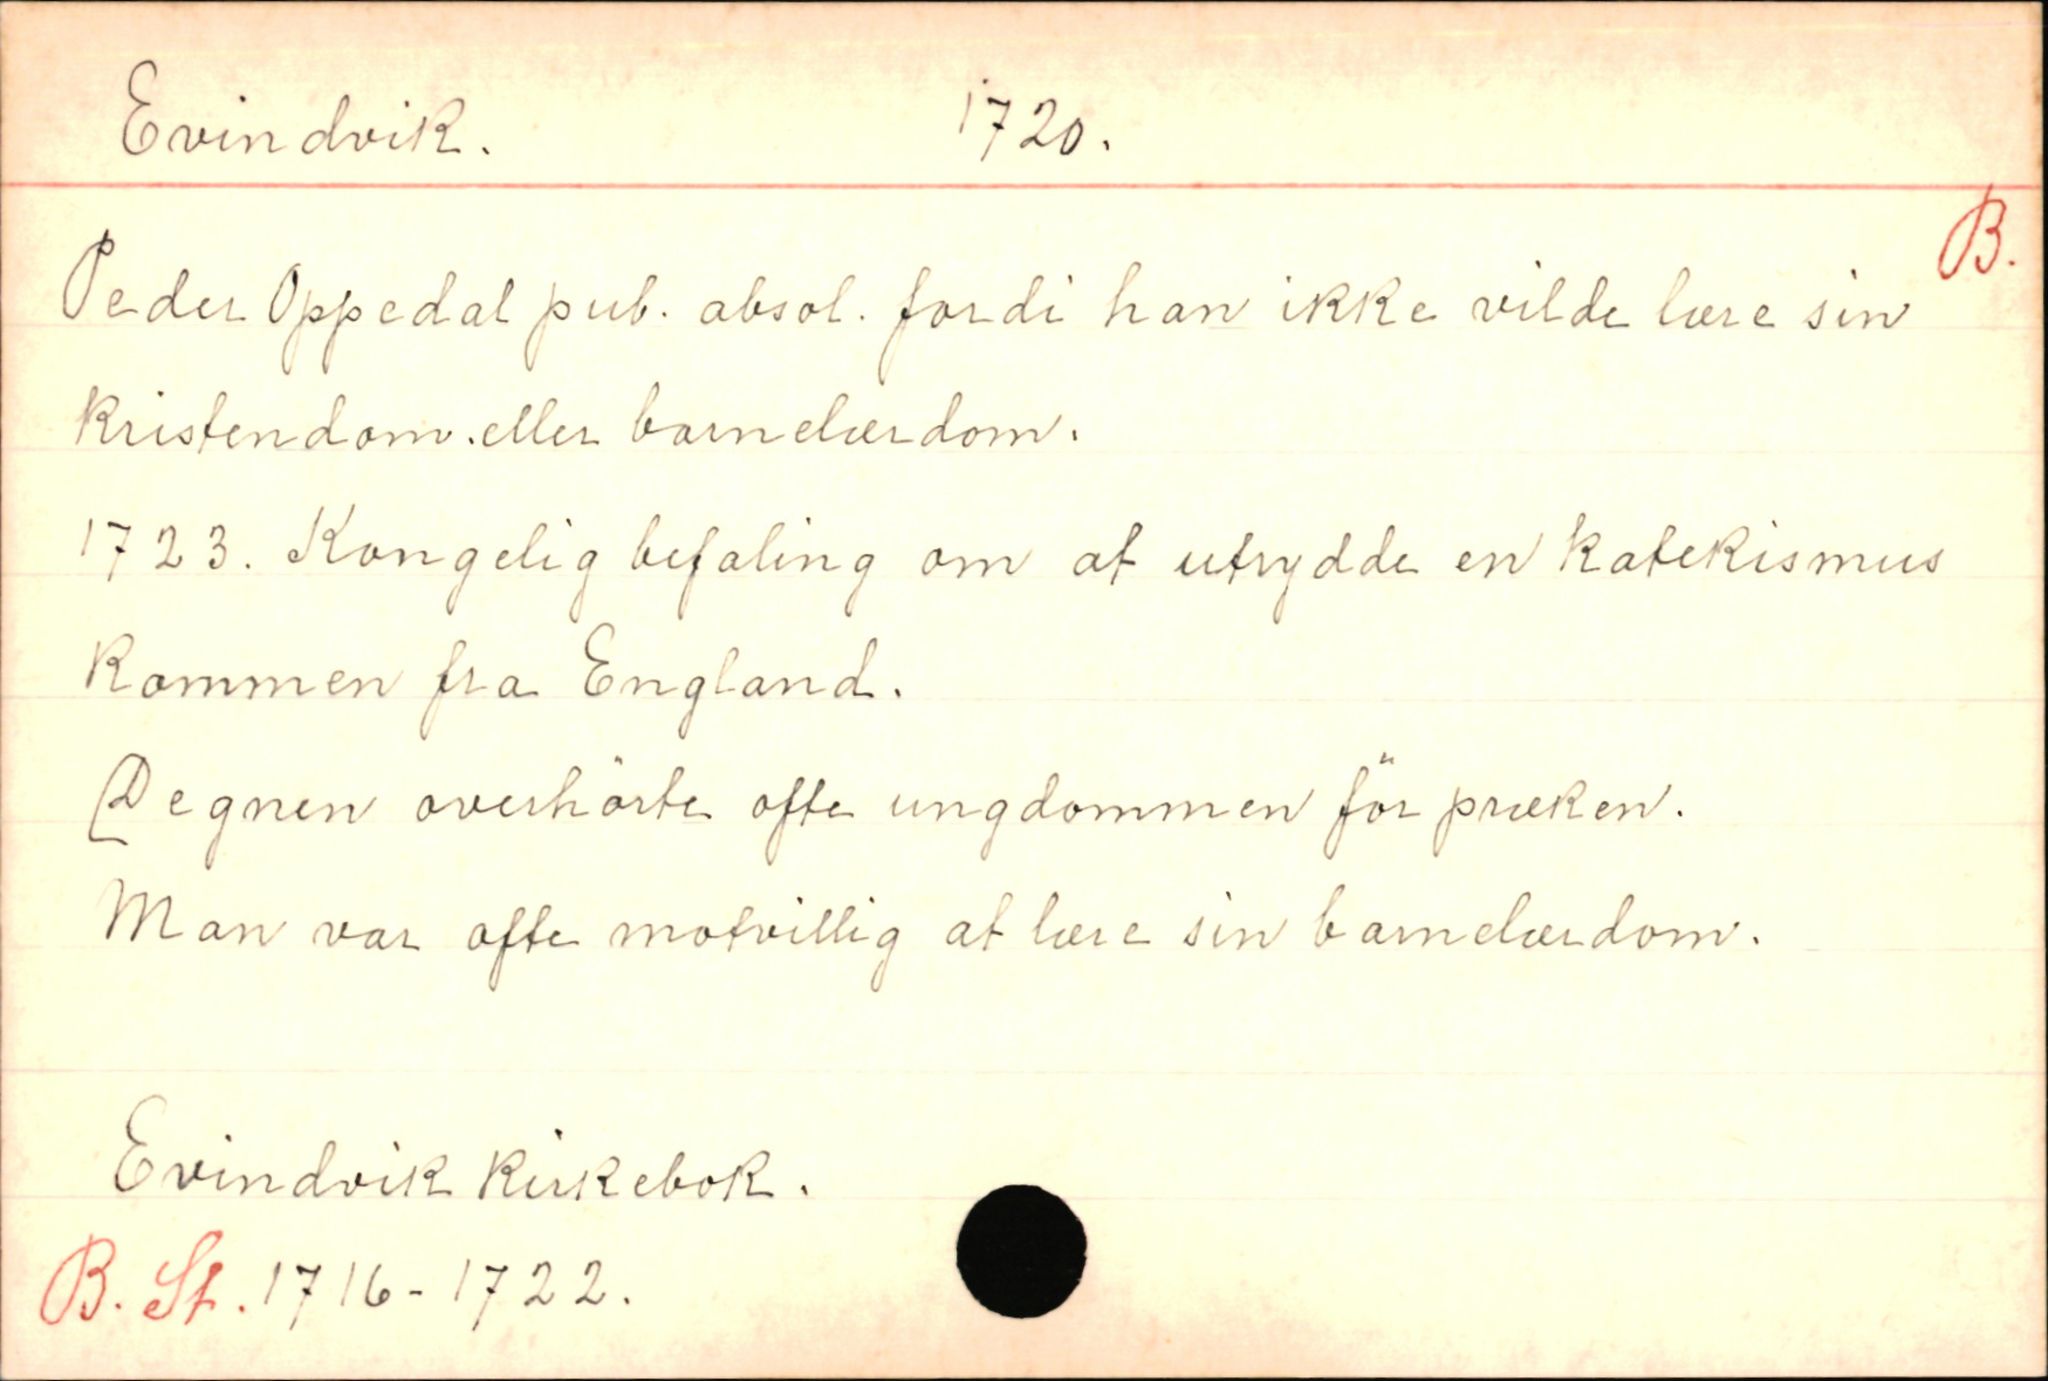 Evindvik. 1720.
B.
Peder Oppedal pub. absol. fordi han ikke vilde lære sin
kristendom. eller barnelærdom.
1723. Kongelig befaling om at utrydde en katekismus
kommen fra England.
Degnen overhörte ofte ungdommen för præken.
Man var ofte motvillig at lære sin barnelærdom.
Evindvik kirkebok.
B. St. 1716-1722.